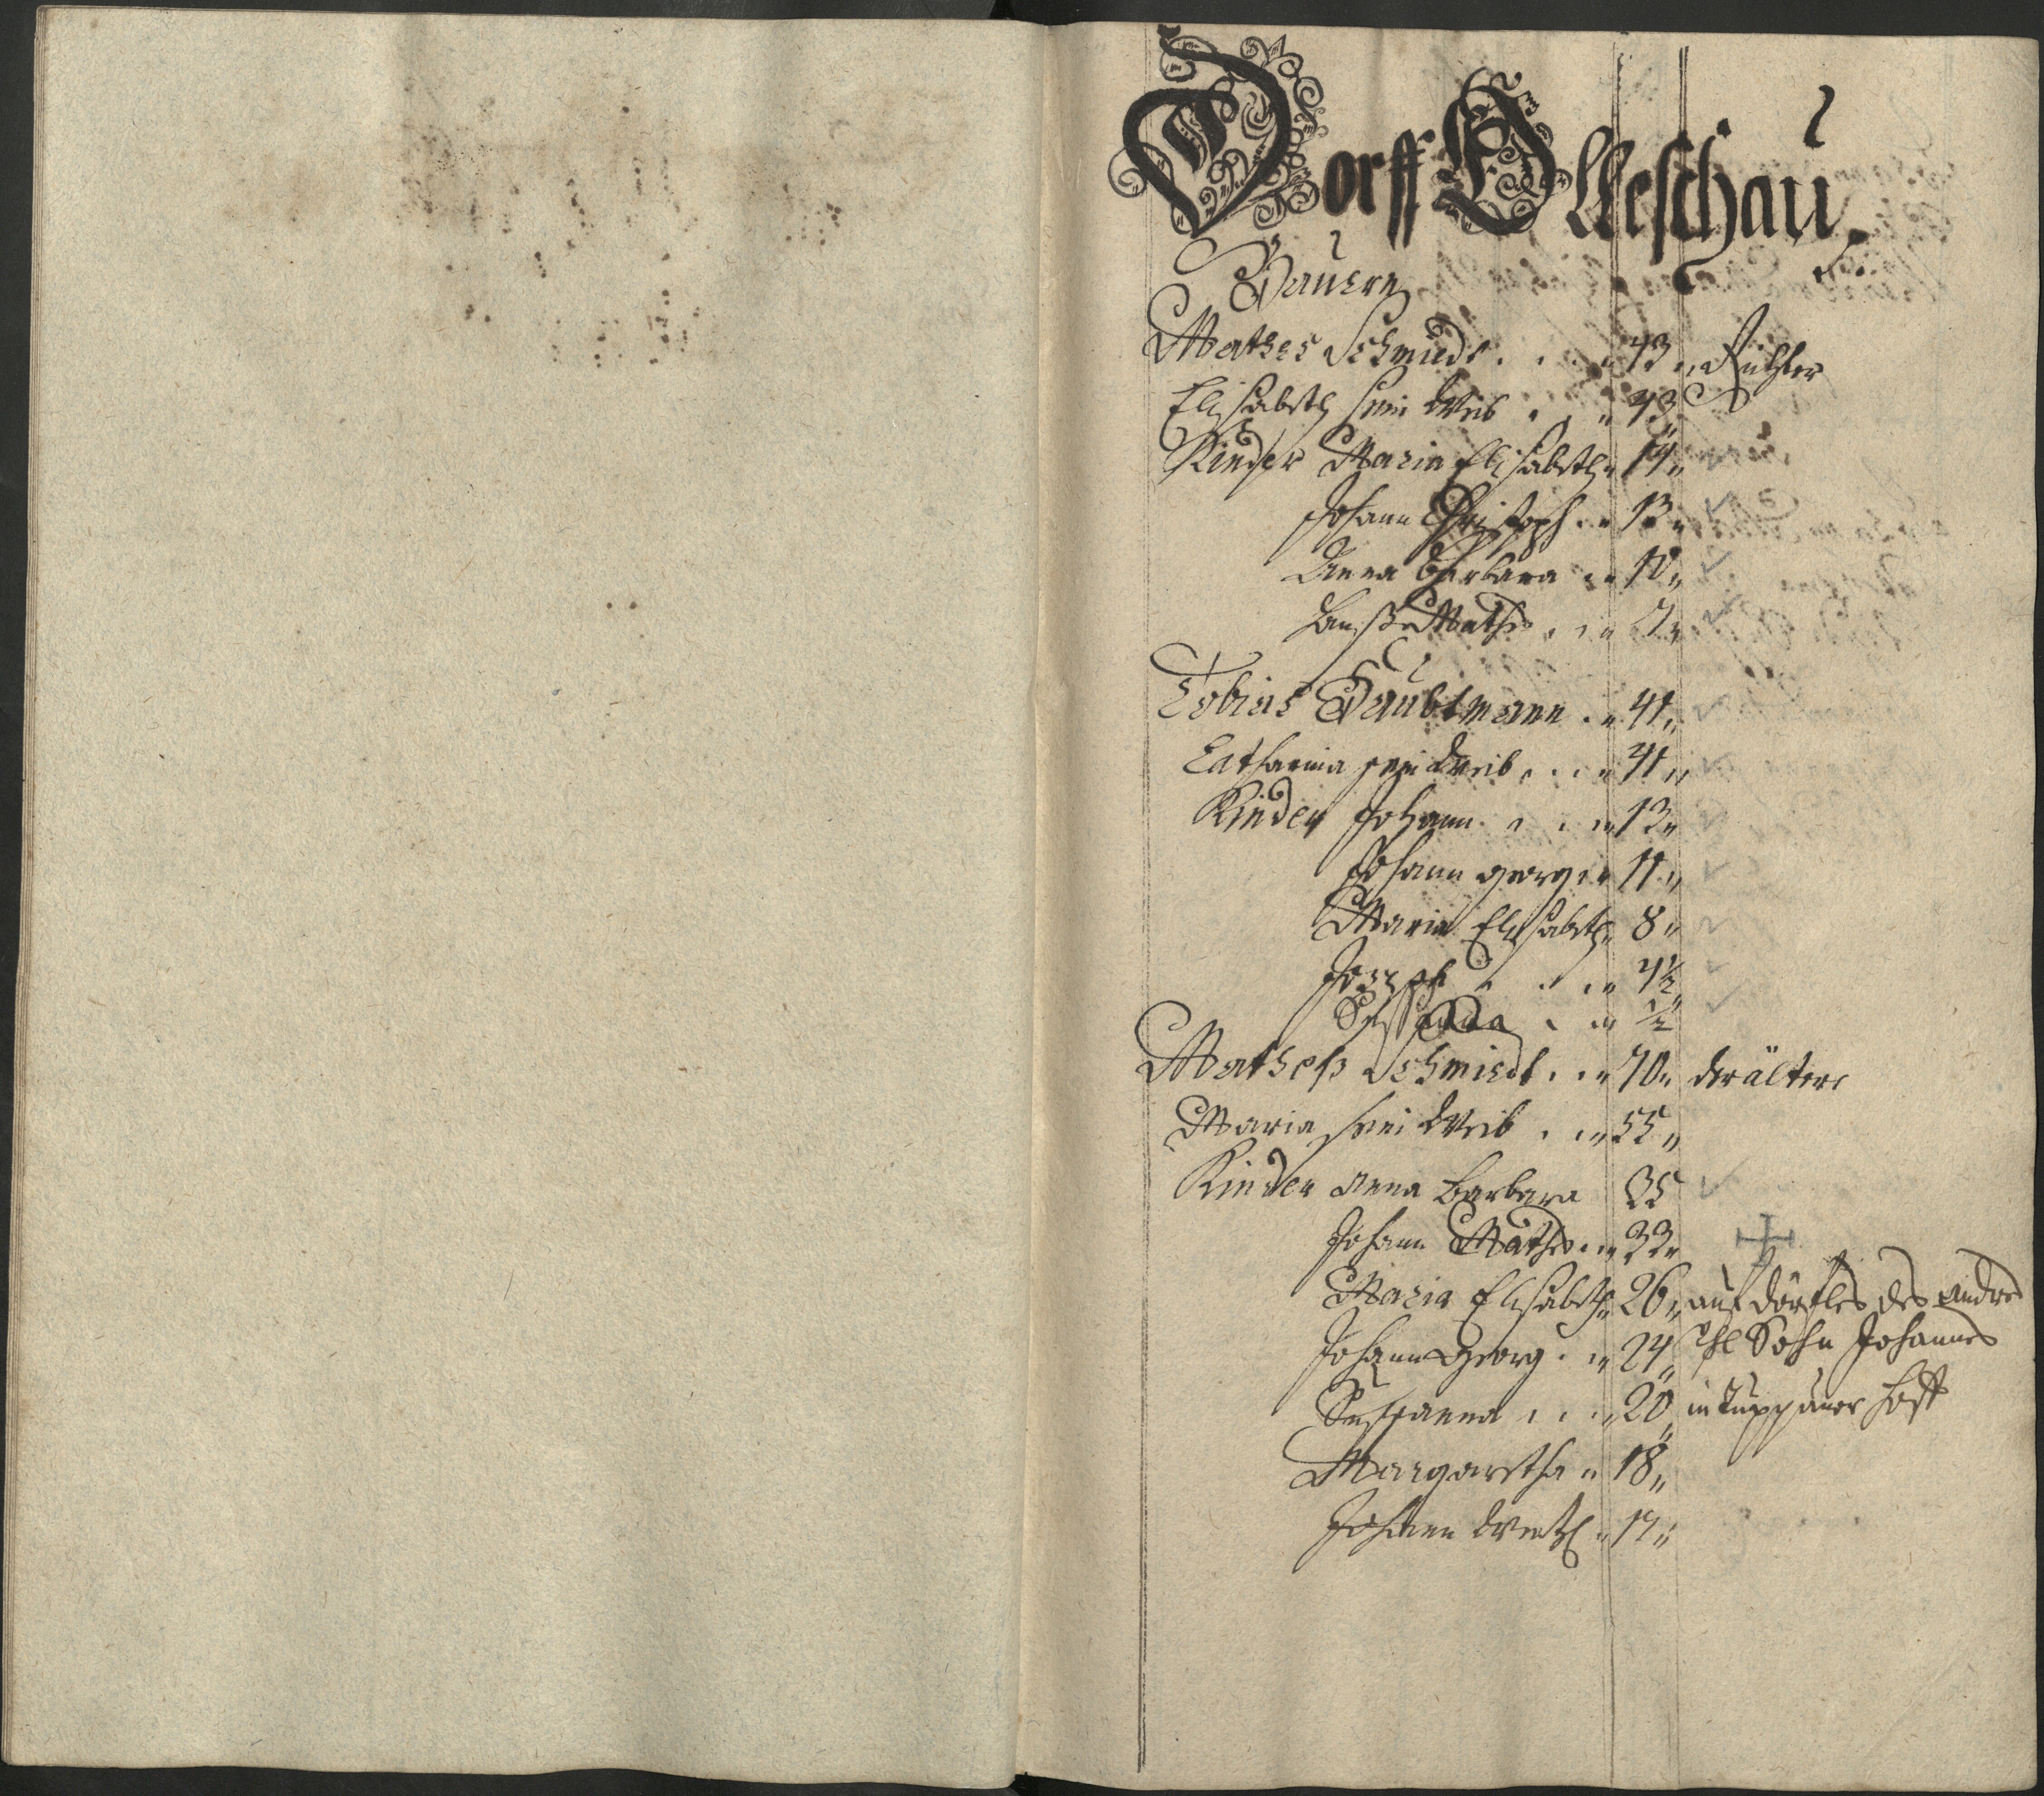 Dorff Olleschau.
Bauern
Mathes Schmiedt 43 Richter
Elisabeth sein Weib 43
Kinder Maria Elisabeth 14
Johann Christoph 13
Anna Barbara 10
Mathes 7
Tobias Taubtmann 41
Catharina sein Weib 41
Kinder Johann 13
Johann Georg 11
Maria Elisabeth 8
Joseph 4½
Susanna ½
Mathes Schmiedt 70 der ältere
Maria sein Weib 55
Kinder Anna Barbara 35
Johann Mathes 33
Maria Elisabeth 26 auf Dörfles des Andres
Johann Georg 24 Sohn Johannes
Susanna 20 in Hoff
Margaretha 18
Johann Wentzl 17